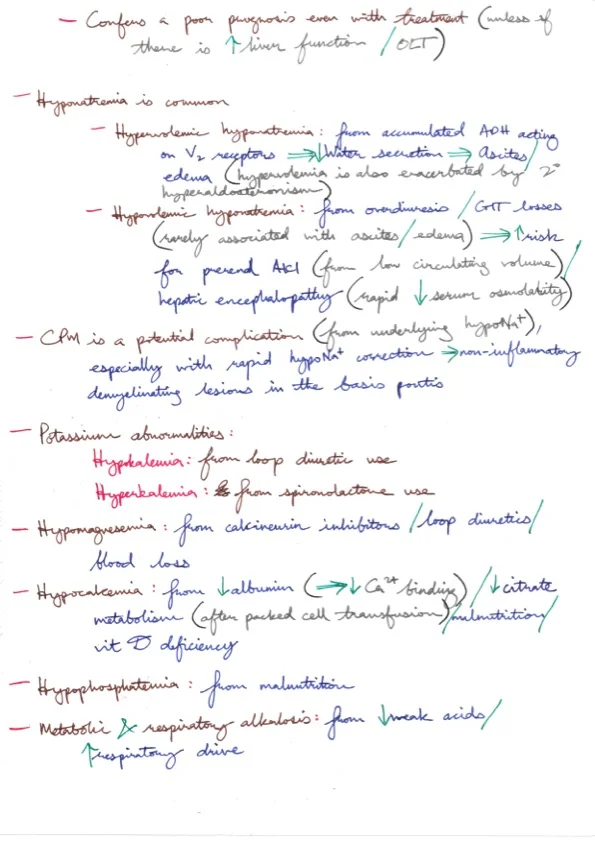 — Confers a poor prognosis even with treatment (unless if
there is ↑ liver function / OLT)
— Hyponatremia is common
— Hypervolemic hyponatremia : from accumulated ADH acting
on V₂ receptors ⇒ ↓Water secretion ⇒ Ascites/
edema (hypervolemia is also exacerbated by 2°
hyperaldosteronism)
— Hypovolemic hyponatremia : from overdiuresis / GIT losses
(rarely associated with ascites/edema) ⇒ ↑risk
for prerenal AKI (from low circulating volume)/
hepatic encephalopathy (rapid ↓ serum osmolality)
— CPM is a potential complication (from underlying hypoNa⁺),
especially with rapid hypoNa⁺ correction ⇒ non-inflammatory
demyelinating lesions in the basis pontis
— Potassium abnormalities :
Hypokalemia : from loop diuretic use
Hyperkalemia : from spironolactone use
— Hypomagnesemia : from calcineurin inhibitors / loop diuretics/
blood loss
— Hypocalcemia : from ↓albumin (⇒↓ Ca²⁺ binding) / ↓citrate
metabolism (after packed cell transfusion)/malnutrition/
vit D deficiency
— Hypophosphatemia : from malnutrition
— Metabolic & respiratory alkalosis : from ↓weak acids/
↑respiratory drive